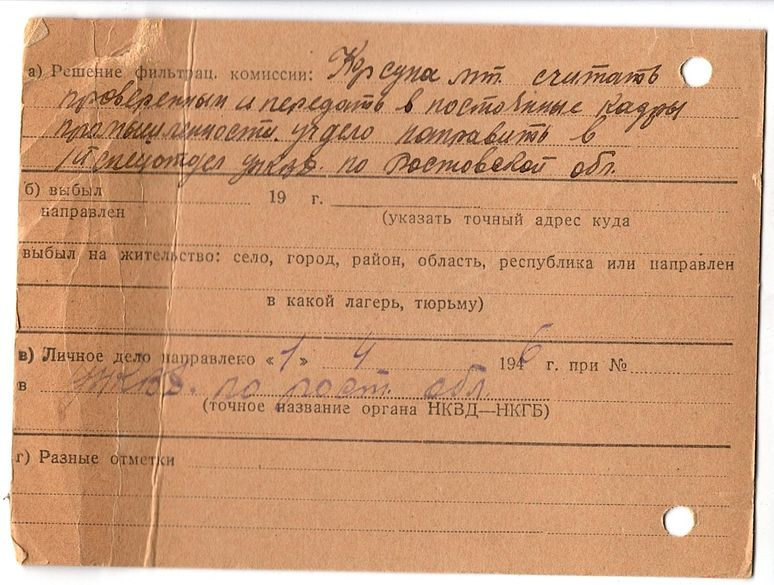 а) Решение фильтрац. комиссии: Керсуна мт. считать
проверенным и передать в постоянные кадры
промышленности. уч дело направить в
1й спецотдел УНКВД. по Ростовской обл.
б) выбыл 19 г.
направлен
(указать точный адрес куда
выбыл на жительство: село, город, район, область, республика или направлен
в какой лагерь, тюрьму)
в) Личное дело направлено «1» 4 1946 г. при №
в УНКВД. по рост. обл.
(точное название органа НКВД—НКГБ)
г) Разные отметки